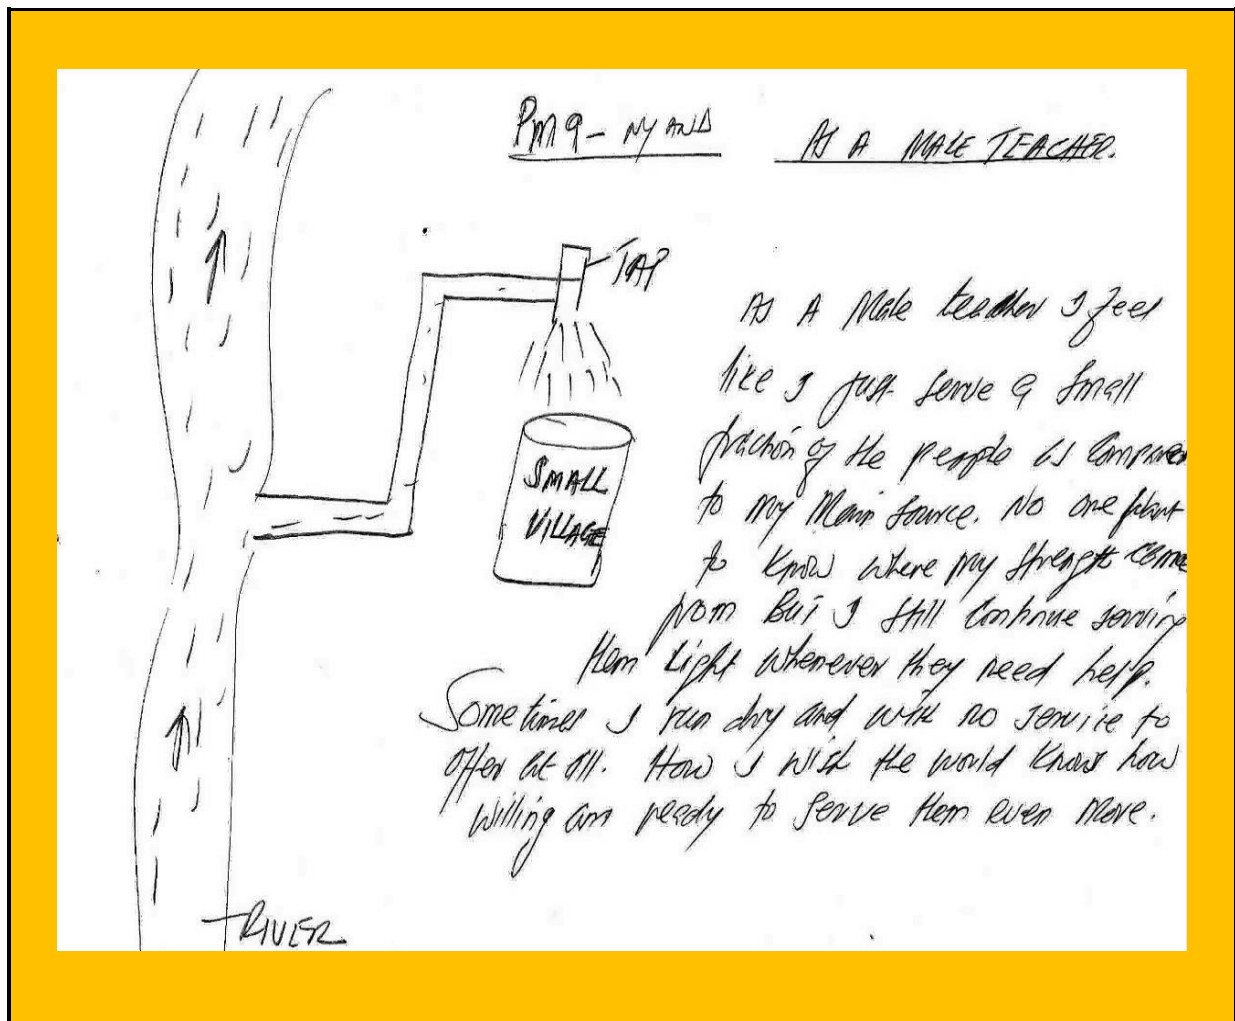 PM9- NYAND AS A MALE TEACHER.
TAP
As A Male teacher I feel
like I just serve a small
fraction of the people as compared
to my Main source. No one want
to know where my strength come
from But I still continue serving
them light whenever they need help.
Sometimes I run dry and with no service to
offer at all. How I wish the world knows how
willing am ready to serve them even more.
SMALL
VILLAGE
RIVER